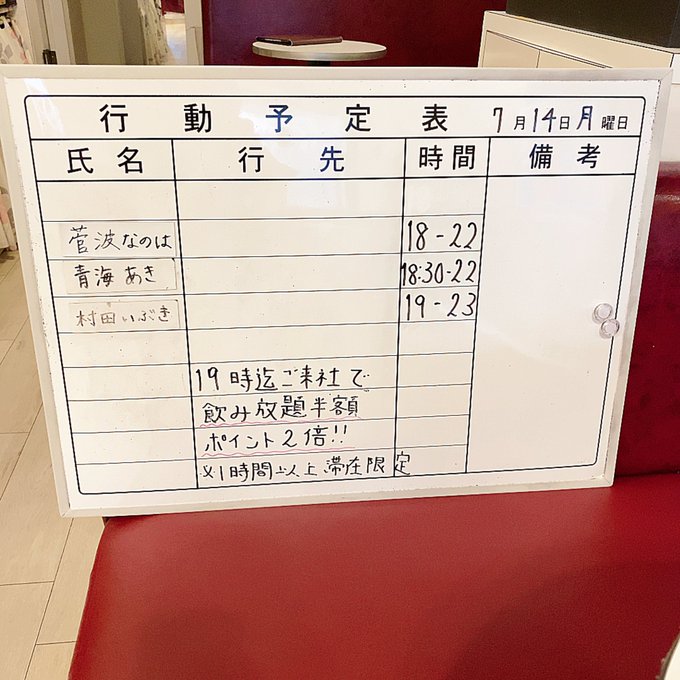 行動予定表 7月14日月曜日
氏名 行先 時間 備考
菅波なのは 18-22
青海あき 18:30-22
村田いぶき 19-23
19時迄ご来社で
飲み放題半額
ポイント2倍!!
※1時間以上滞在限定